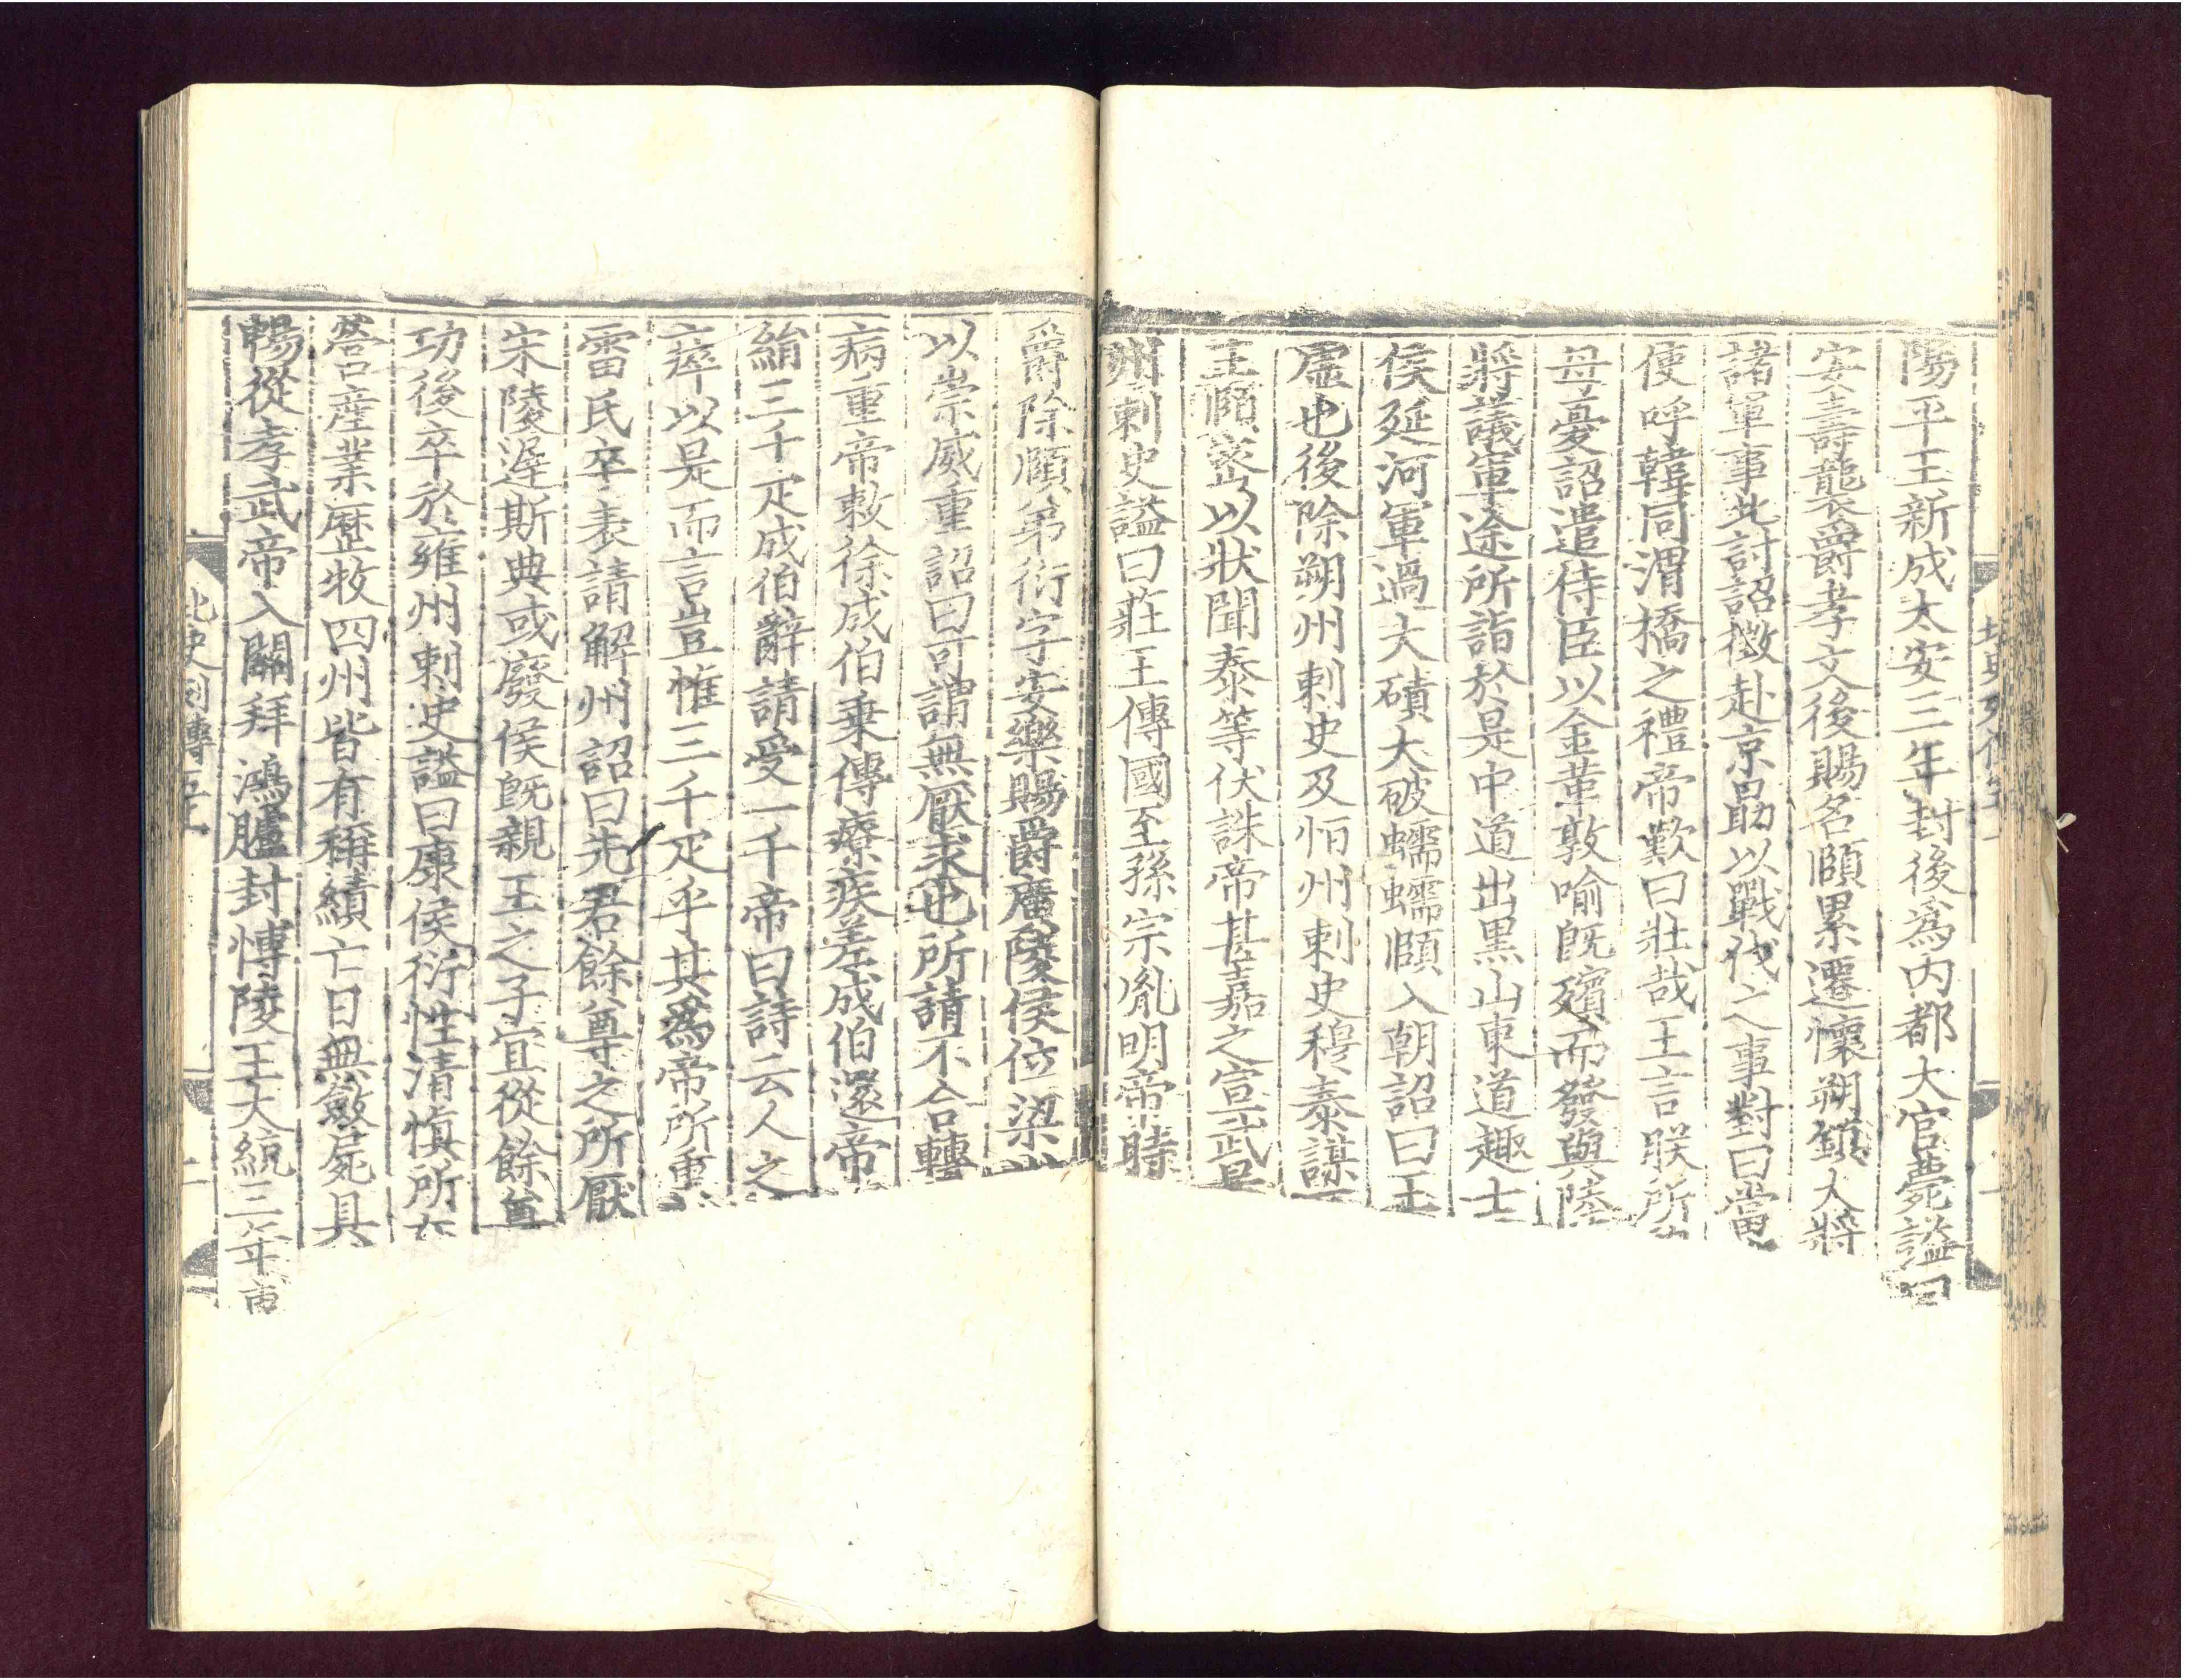 陽平王新成太安三年封後爲內都大官薨謚曰
安壽襲爵孝文後賜名頤累遷懷朔鎮大將
諸軍事北討詔徵赴京勗以戰伐之事對曰當
使呼韓同渭橋之禮帝歎曰壯哉王言朕所
母憂詔遣侍臣以金革敦喻旣殯而發與陸
將議軍途所詣於是中道出黑山東道趣士
侯延河軍過大磧大破蠕蠕頤入朝詔曰王
虛也後除朔州刺史及恒州刺史穆泰謀
王頤密以狀聞泰等伏誅帝甚嘉之宣武
州刺史謚曰莊王傳國至孫宗胤明帝時
爵除頤弟衍字安樂賜爵廣陵侯位梁
以崇威重詔曰可謂無厭求也所請不合轉
病重帝敕徐成伯乗傳療疾差成伯還帝
絹三千疋成伯辭請受一千帝曰詩云人之
瘁以是而言豈惟三千疋乎其爲帝所重
雷氏卒表請解州詔曰先君餘尊之所厭
宋陵遲斯典或廢侯旣親王之子宜從餘尊
功後卒於雍州刺史謚曰康侯衍性清愼所在
營產業歷牧四州皆有稱績亡日無斂屍具
暢從孝武帝入關拜鴻臚封博陵王大統三年
北史列傳五